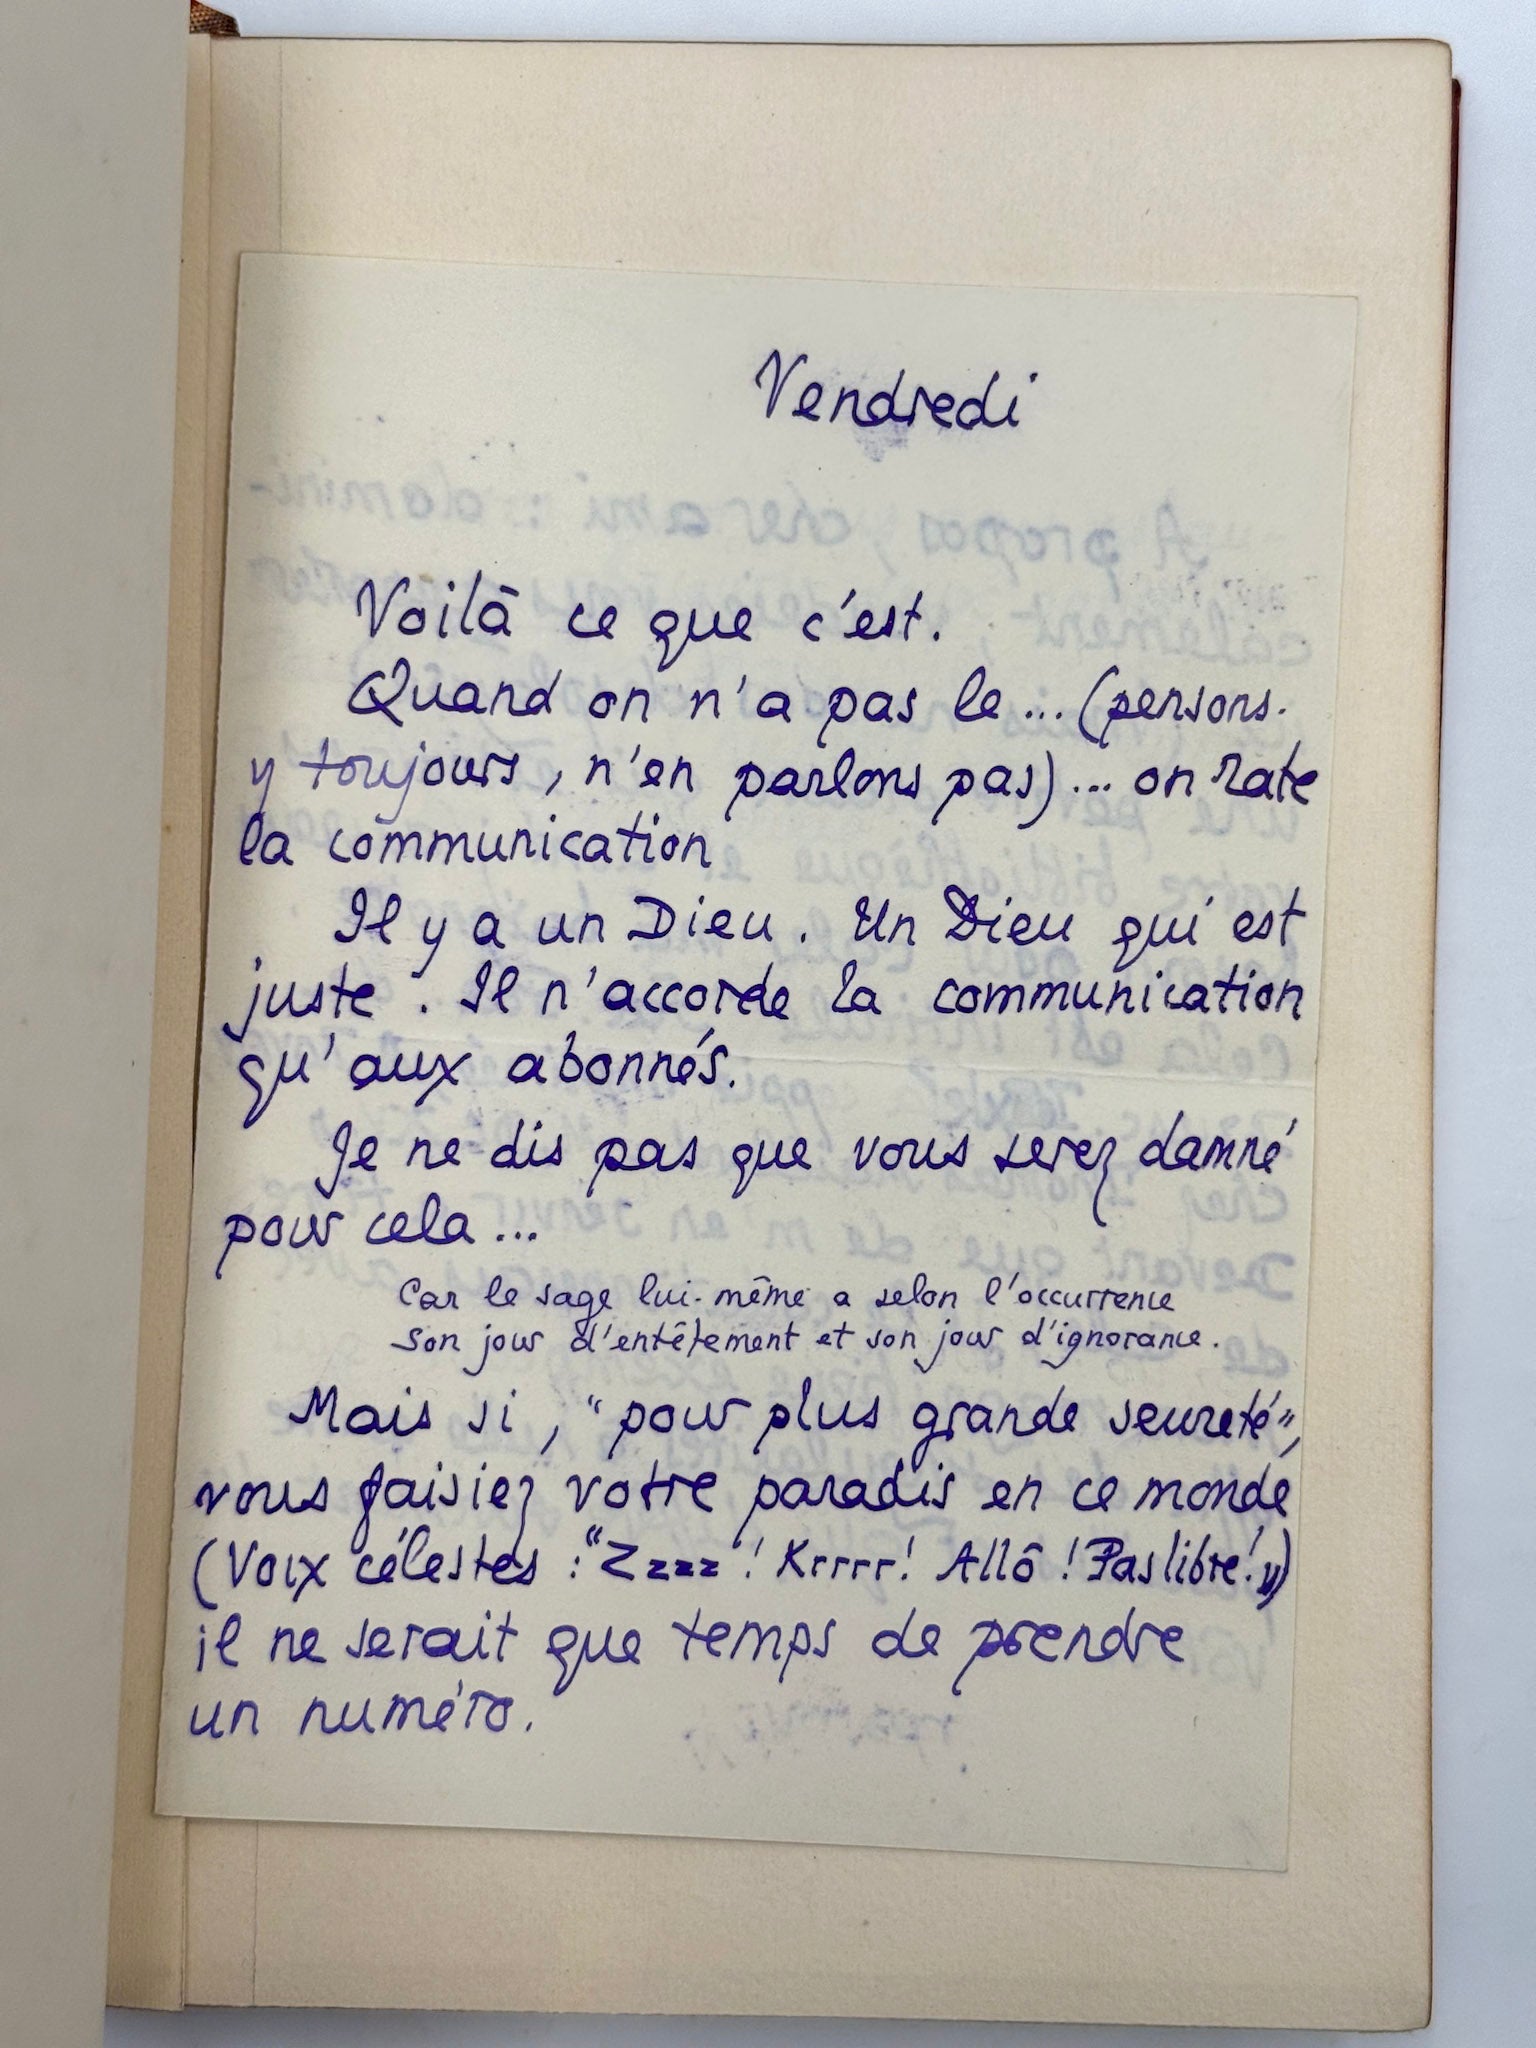 Vendredi
Voilà ce que c'est.
Quand on n'a pas le... (pensons-
y toujours, n'en parlons pas)... on rate
la communication
Il y a un Dieu. Un Dieu qui est
juste. Il n'accorde la communication
qu'aux abonnés.
Je ne dis pas que vous serez damné
pour cela...
Car le sage lui-même a selon l'occurrence
Son jour d'entêtement et son jour d'ignorance.
Mais si, "pour plus grande seureté",
vous faisiez votre paradis en ce monde
(Voix célestes : "Zzzzz ! Krrrrr ! Allô ! Pas libre !")
il ne serait que temps de prendre
un numéro.